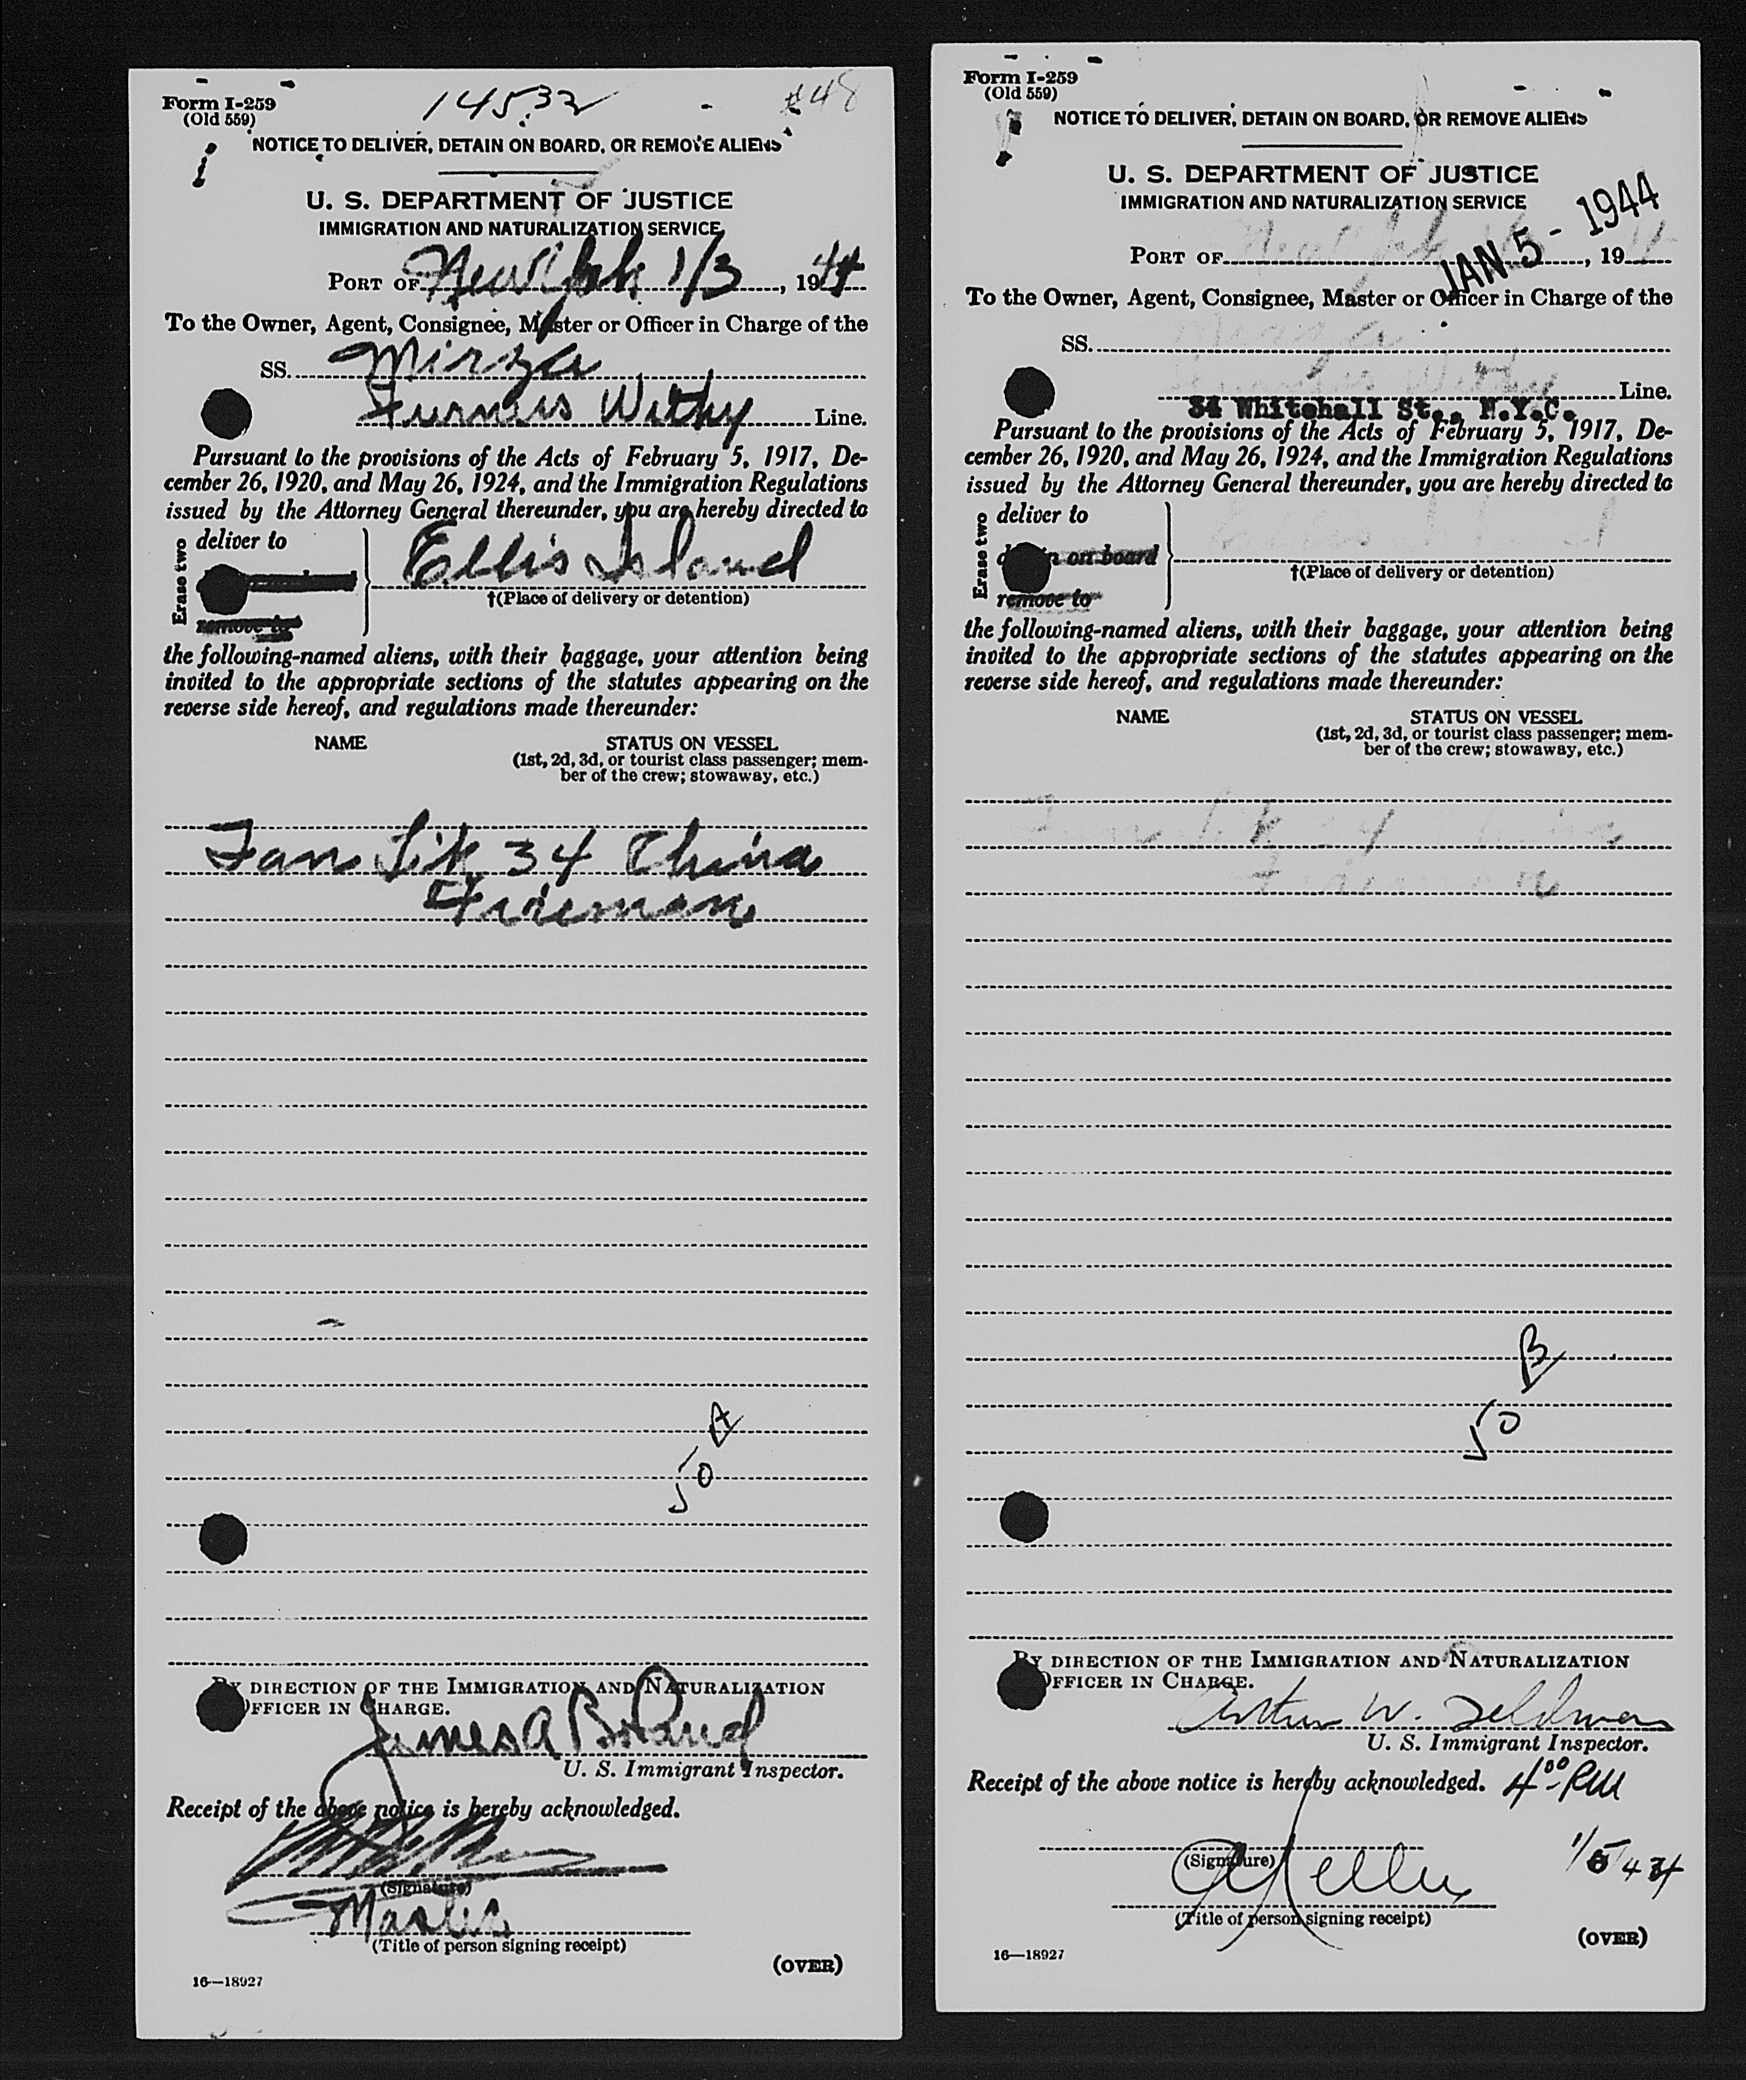 Form I-259
(Old 559)
14532
#48
NOTICE TO DELIVER, DETAIN ON BOARD, OR REMOVE ALIENS
U. S. DEPARTMENT OF JUSTICE
IMMIGRATION AND NATURALIZATION SERVICE
PORT OF New York 1/3, 1944
To the Owner, Agent, Consignee, Master or Officer in Charge of the
SS. Mirza
Furness Withy Line.
Pursuant to the provisions of the Acts of February 5, 1917, De-
cember 26, 1920, and May 26, 1924, and the Immigration Regulations
issued by the Attorney General thereunder, you are hereby directed to
Erase two
deliver to
remove to
Ellis Island
†(Place of delivery or detention)
the following-named aliens, with their baggage, your attention being
invited to the appropriate sections of the statutes appearing on the
reverse side hereof, and regulations made thereunder:
NAME
STATUS ON VESSEL
(1st, 2d, 3d, or tourist class passenger; mem-
ber of the crew; stowaway, etc.)
34 China
Fireman
A
50
BY DIRECTION OF THE IMMIGRATION AND NATURALIZATION
OFFICER IN CHARGE.
James A Boland
U. S. Immigrant Inspector.
Receipt of the above notice is hereby acknowledged.
(Signature)
Master
(Title of person signing receipt)
(OVER)
16—18927
Form I-259
(Old 559)
NOTICE TO DELIVER, DETAIN ON BOARD, OR REMOVE ALIENS
U. S. DEPARTMENT OF JUSTICE
IMMIGRATION AND NATURALIZATION SERVICE
JAN 5 - 1944
PORT OF New York, 19
To the Owner, Agent, Consignee, Master or Officer in Charge of the
SS. Mirza
Furness Withy Line.
34 Whitehall St., N.Y.C.
Pursuant to the provisions of the Acts of February 5, 1917, De-
cember 26, 1920, and May 26, 1924, and the Immigration Regulations
issued by the Attorney General thereunder, you are hereby directed to
Erase two
deliver to
detain on board
remove to
†(Place of delivery or detention)
the following-named aliens, with their baggage, your attention being
invited to the appropriate sections of the statutes appearing on the
reverse side hereof, and regulations made thereunder:
NAME
STATUS ON VESSEL
(1st, 2d, 3d, or tourist class passenger; mem-
ber of the crew; stowaway, etc.)
34
B
50
BY DIRECTION OF THE IMMIGRATION AND NATURALIZATION
OFFICER IN CHARGE.
Arthur W. Feldman
U. S. Immigrant Inspector.
Receipt of the above notice is hereby acknowledged. 4 00 PM
1/5/44
(Signature)
(Title of person signing receipt)
(OVER)
16—18927